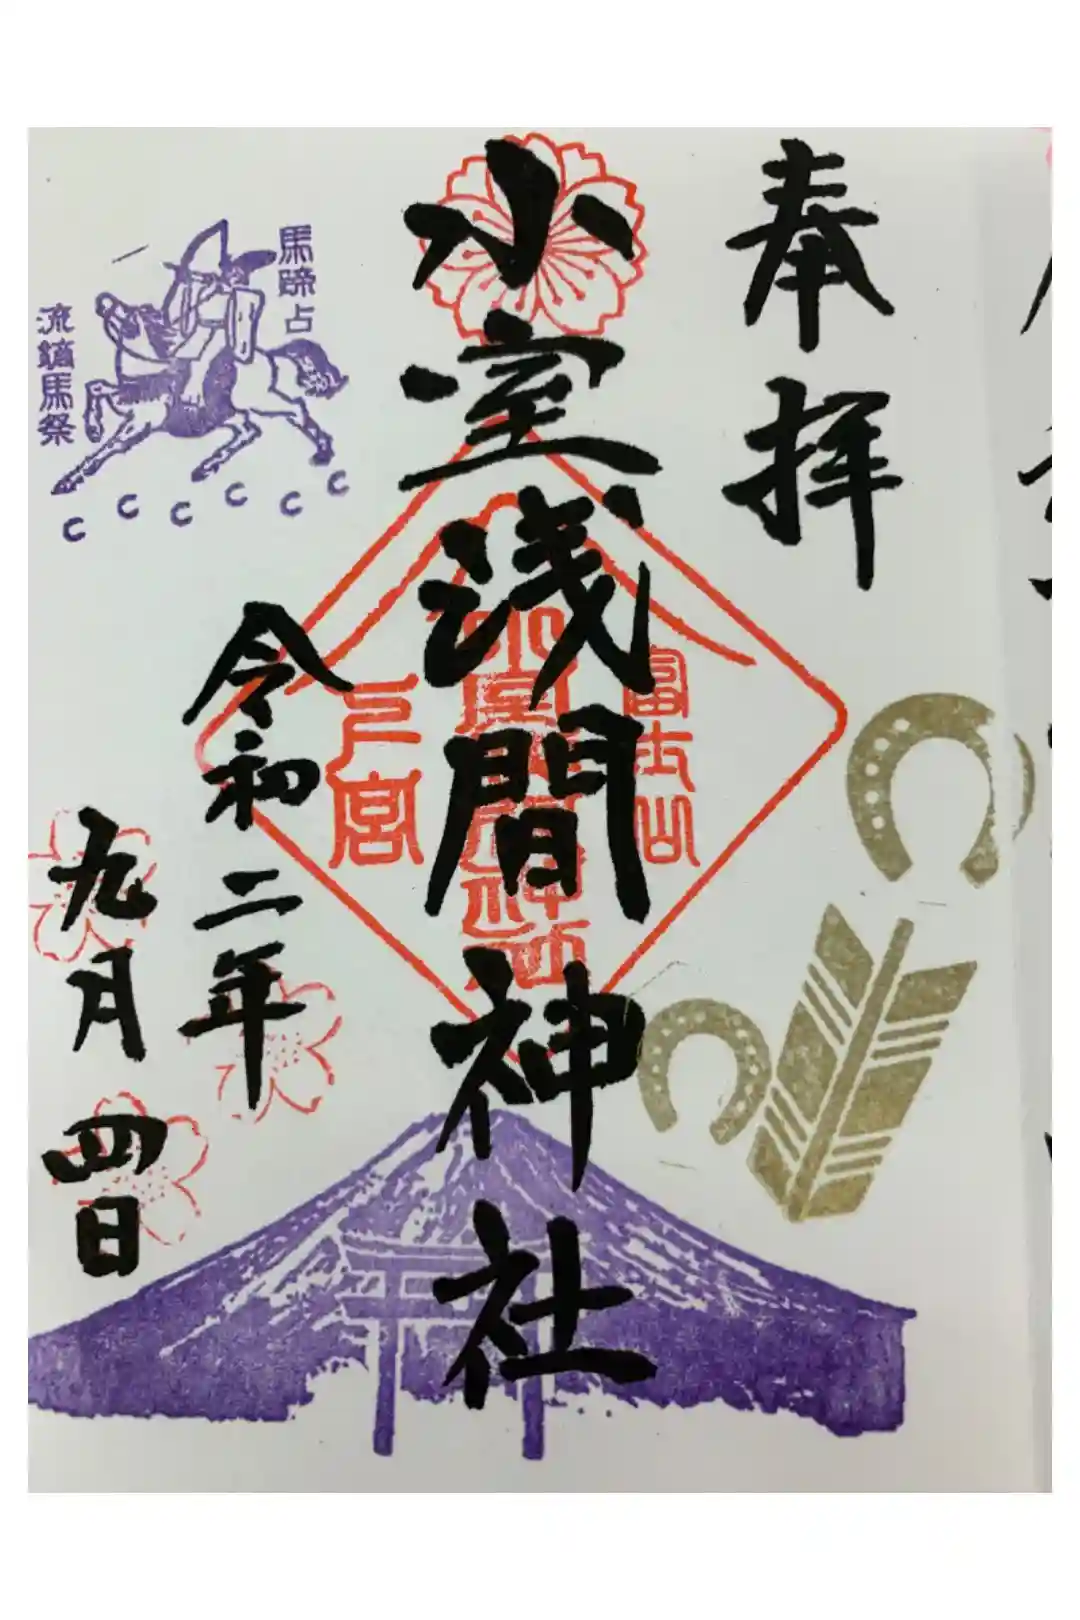 奉拝
富士山
小室浅間神社
小室浅間神社
下宮
令和二年
九月四日
馬蹄占
流鏑馬祭